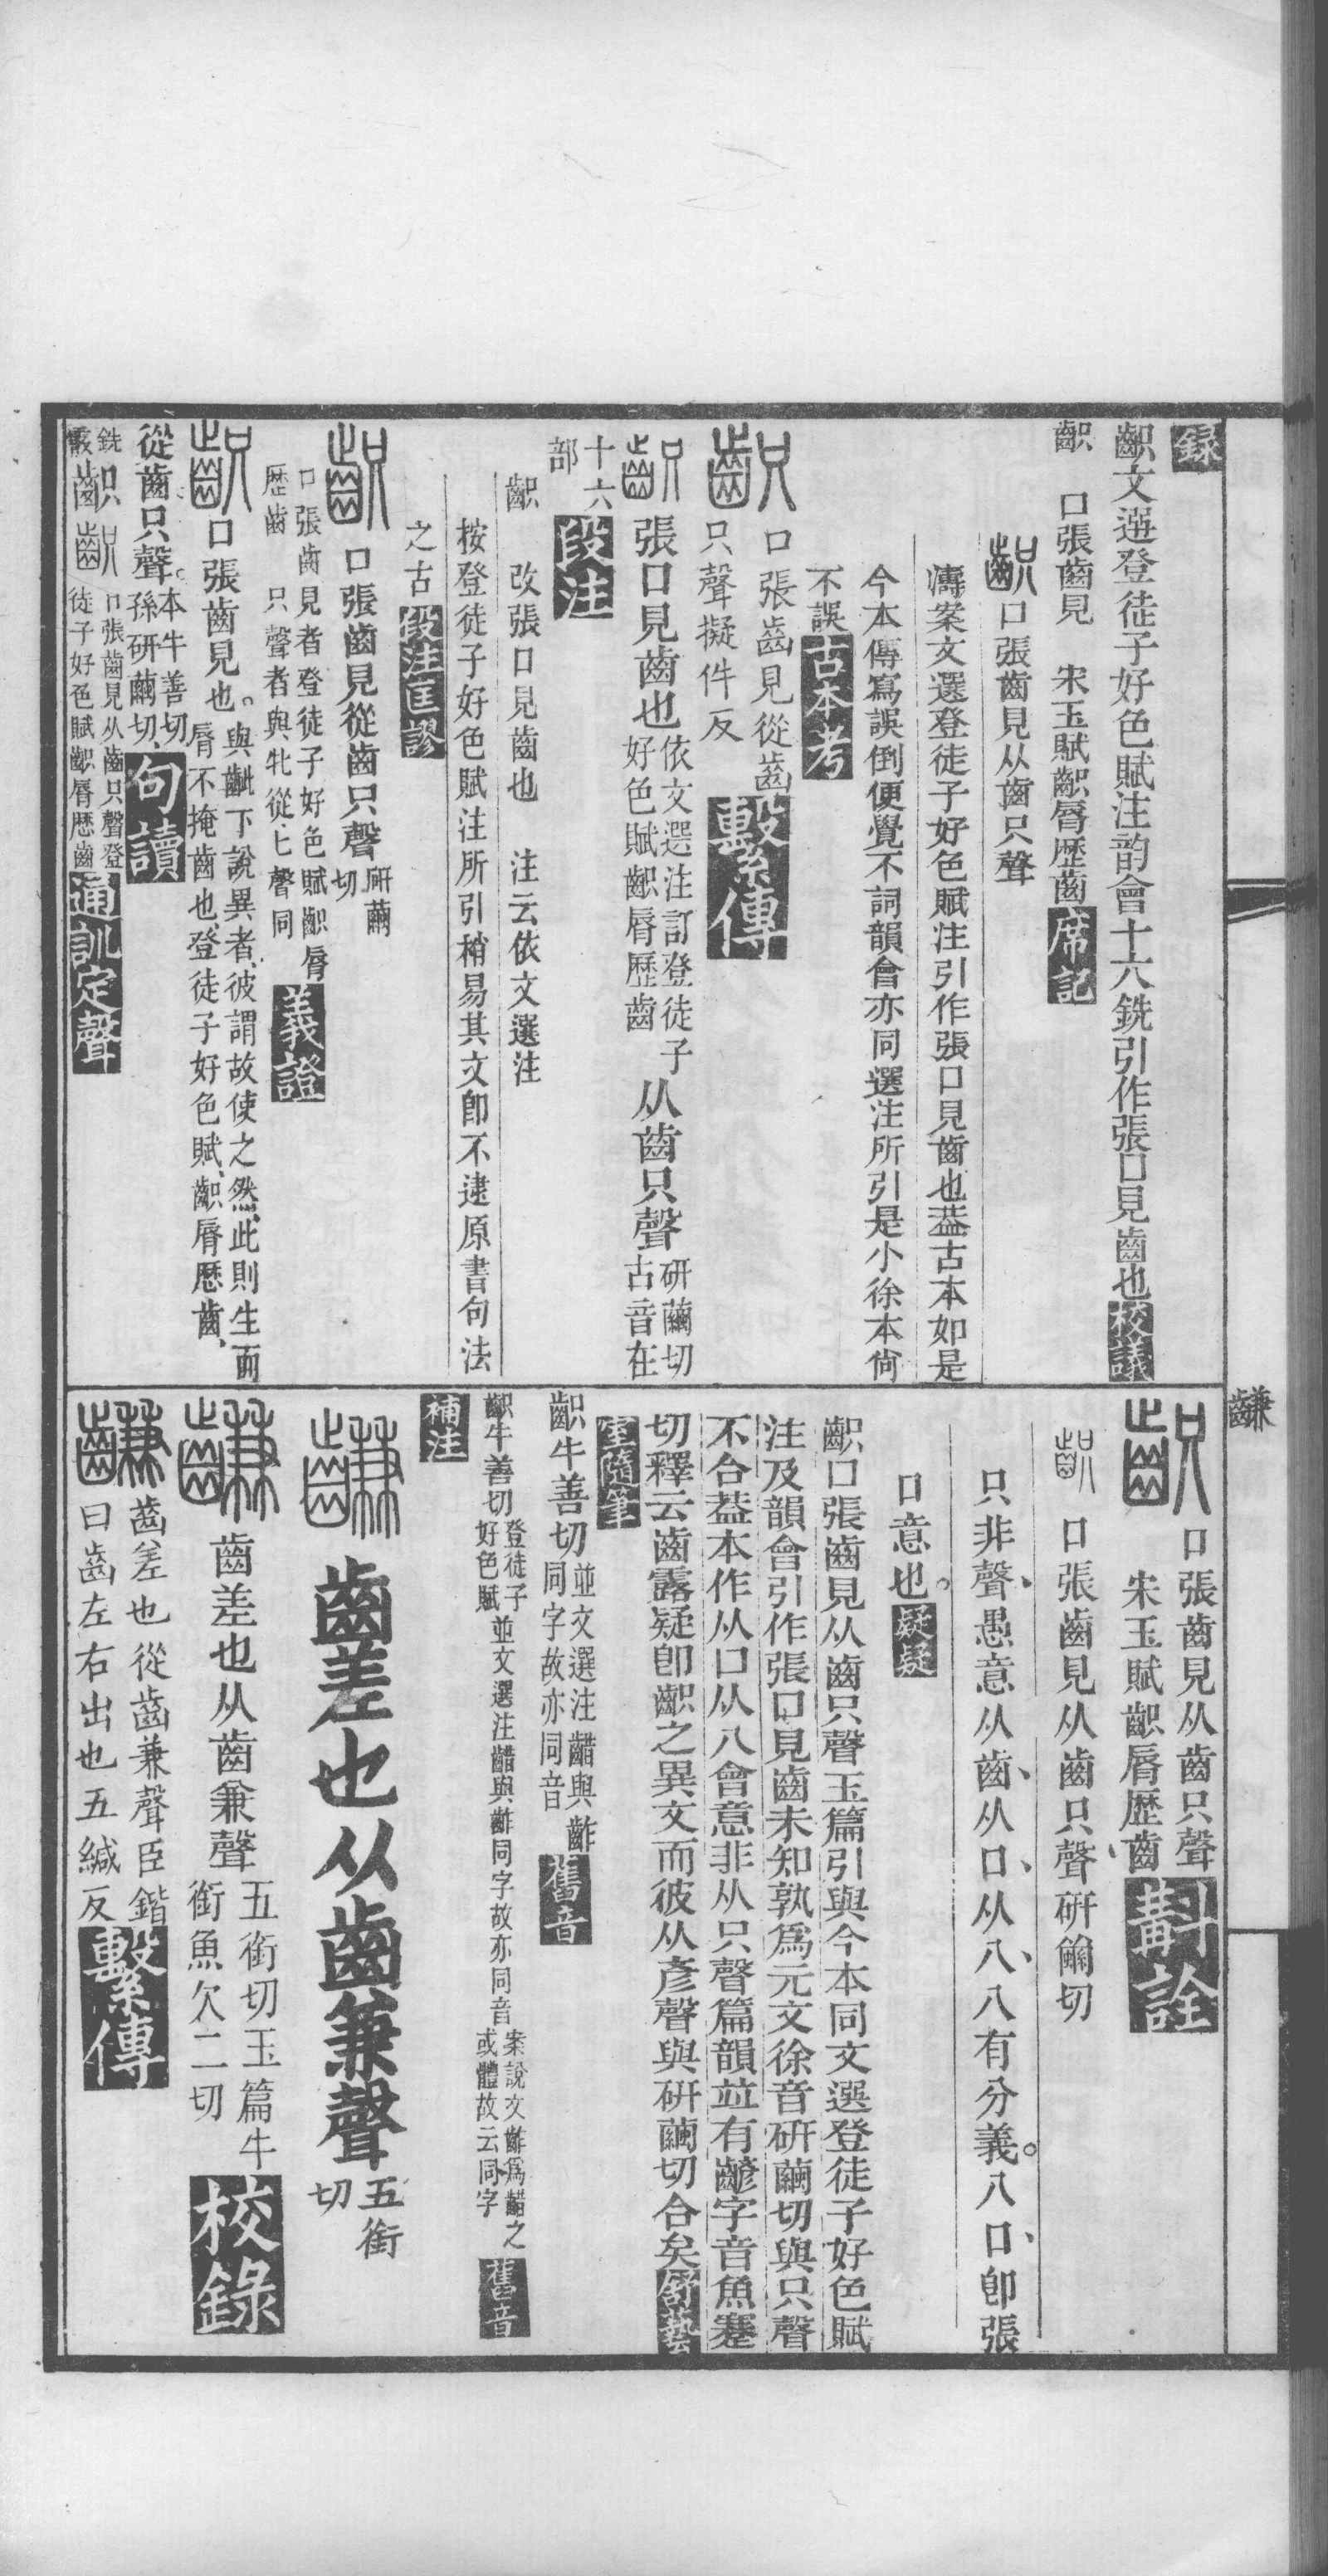 録
齞文選登徒子好色賦注韵會十六銑引作張口見齒也校議
齞 口張齒見 宋玉賦齞脣歷齒席記
齞口張齒見从齒只聲
濤案文選登徒子好色賦注引作張口見齒也葢古本如是
今本傳寫誤倒便覺不詞韻會亦同選注所引是小徐本尙
不誤古本考
齞口張齒見從齒
只聲擬件反繫傳
齞張口見齒也依文選注訂登徒子
好色賦齞脣歷齒从齒只聲研繭切
古音在
十六
部段注
齞 改張口見齒也 注云依文選注
按登徒子好色賦注所引稍易其文卽不逮原書句法
之古段注匡謬
齞口張齒見從齒只聲研繭
切
口張齒見者登徒子好色賦齞脣
歷齒 只聲者與牝從匕聲同義證
齞口張齒見也。與齜下說異者、彼謂故使之然、此則生而
脣不掩齒也、登徒子好色賦、齞脣歷齒、
從齒只聲。本牛善切、
孫研繭切、句讀
銑
齞齞口張齒見从齒只聲登
徒子好色賦齞脣歷齒通訓定聲
齞口張齒見从齒只聲
宋玉賦齞脣歷齒斠詮
齞 口張齒見从齒只聲研繭切
只非聲、愚意从齒、从口、从八、八有分義。八口、卽張
口意也。疑疑
齞口張齒見从齒只聲玉篇引與今本同文選登徒子好色賦
注及韻會引作張口見齒未知孰爲元文徐音研繭切與只聲
不合葢本作从口从八會意非从只聲篇韻竝有齴字音魚蹇
切釋云齒露疑卽齞之異文而彼从彥聲與研繭切合矣舒藝
室隨筆
齞牛善切並文選注齰與齚
同字故亦同音舊音
齞牛善切登徒子
好色賦並文選注齰與齚同字故亦同音案說文齚爲齰之
或體故云同字舊音
補注
齒兼
齹齒差也从齒兼聲五銜
切
齒差也从齒兼聲五銜切玉篇牛
銜魚欠二切校錄
齒差也從齒兼聲臣鍇
曰齒左右出也五緘反繫傳